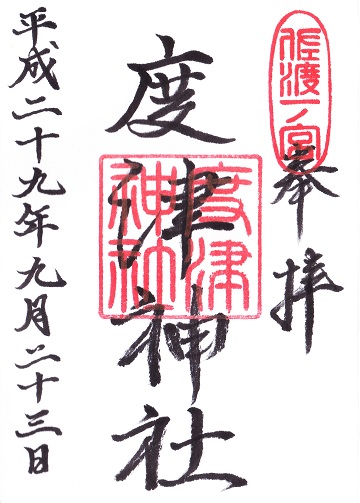 佐渡一ノ宮
奉拝
度津神社
度津
神社
平成二十九年九月二十三日